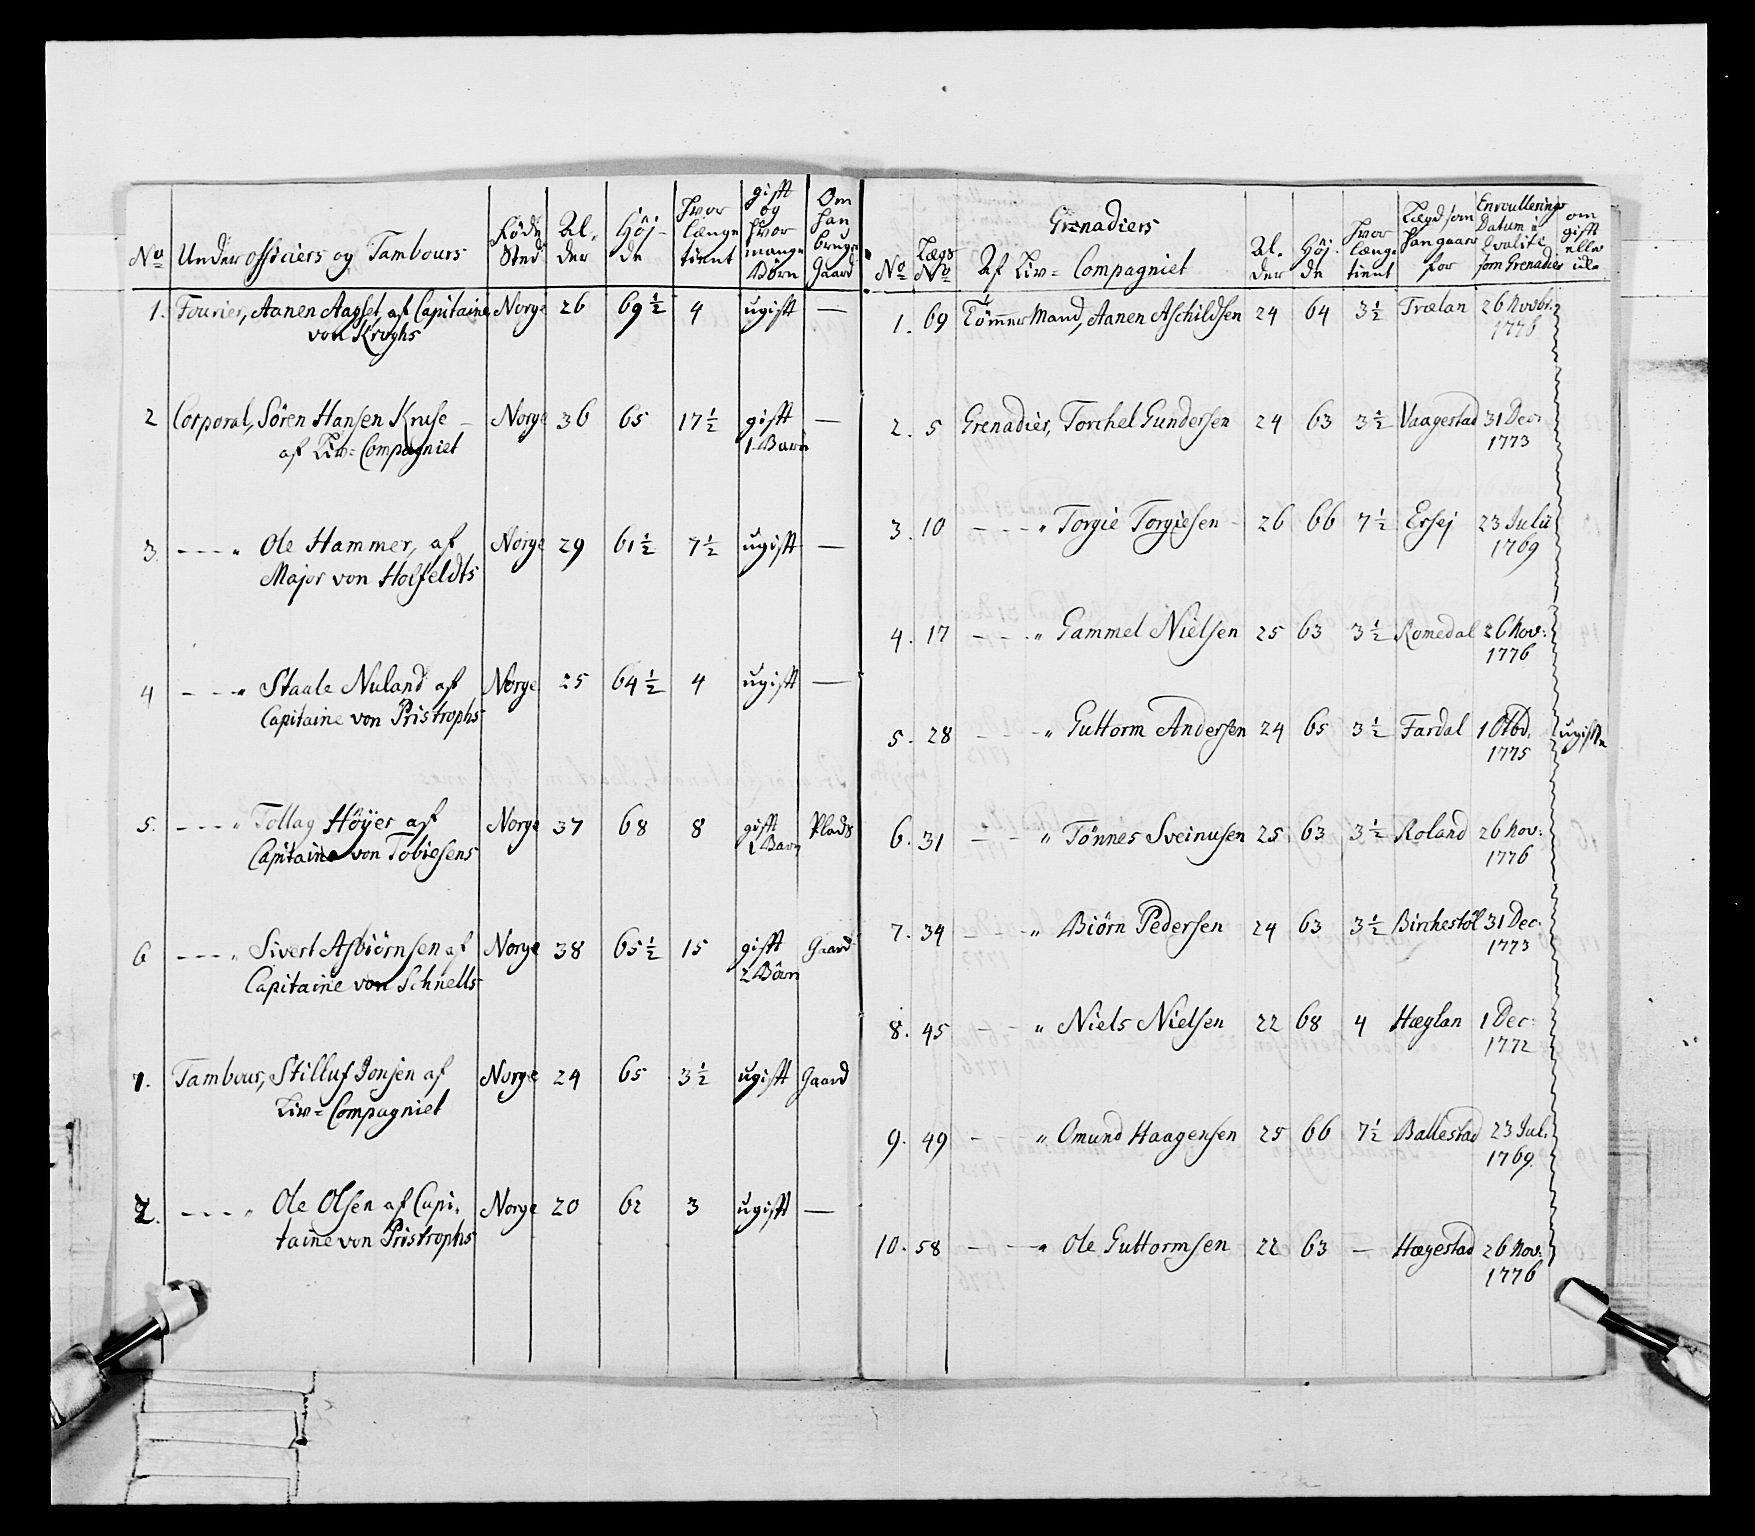 No | Under officiers og Tambours | Føde Sted | Al- der | Høj- de | Hvor længe tient | gift og hvor mange Børn | Om han bruger Gaard
1. Fourier, Aanen Aagset, af Capitaine | Norge | 26 | 69 ½ | 4 | ugift | —
von Kroghs
2 Corporal, Sören Hansen Kruse – | Norge | 36 | 65 | 17 ½ | gift | —
af Liv= Compagniet | 1. Barn
3. – – – „ Ole Hammer, af | Norge | 29 | 61 ½ | 7 ½ | ugift | —
Major von Holfeldts
4 – – – „ Staale Nuland af | Norge | 25 | 64 ½ | 4 | ugift | —
Capitaine von Pristrophs
5. – – – „ Tollag Höÿer af | Norge | 37 | 68 | 8 | gift | Plads
Capitaine von Tobiesens | 1 Barn
6 – – – „ Sivert Asbiörnsen af | Norge | 38 | 65 ½ | 15 | gift | Gaard
Capitaine von Schnells | 2 Börn
1. Tambour, Stilluf Jonsen af | Norge | 24 | 65 | 3 ½ | ugift | Gaard
Liv= Compagniet
2. – – – „ Ole Olsen af Capi- | Norge | 20 | 62 | 3 | ugift | —
taine von Pristrophs
Grenadiers
No | Lægs No | Af Liv= Compagniet | Al- der | Höj- de | Hvor længe tient | Lægd som han gaaer for | Enroullerings Datum i Qvalite som Grenadier | om gift eller ei
1. | 69 | Tömmer Mand, Aanen Aschildsen | 24 | 64 | 3 ½ | Trælan | 26 Novbr.
1776
2. | 5 | Grenadier, Torchel Gundersen | 24 | 63 | 3 ½ | Vaagestad | 31 Decr
1773
3. | 10 | – – – „ Torgie Torgiesen – | 26 | 66 | 7 ½ | Ersej | 23 Julii
1769
4. | 17 | – – – „ Gammel Nielsen | 25 | 63 | 3 ½ | Romedal | 26 Nov:
1776
5. | 28 | – – – „ Guttorm Andersen | 24 | 65 | 3 ½ | Fardal | 1 Octbr. | ugifte
1775
6. | 31 | – – „ Tönnes Sveinusen | 25 | 63 | 3 ½ | Roland | 26 Nov:
1776
7. | 34 | – – – „ Biörn Pedersen | 24 | 63 | 3 ½ | Birchestöl | 31 Dec:
1773
8. | 45 | – – – „ Niels Nielsen | 22 | 68 | 4 | Hæglan | 1 Dec:
1772
9. | 49 | – – „ Omund Haagensen | 25 | 66 | 7 ½ | Ballestad | 23 Jul.
1769
10. | 58 | – – „ Ole Guttormsen | 22 | 63 | — | Hægestad | 26 Nov:
1776